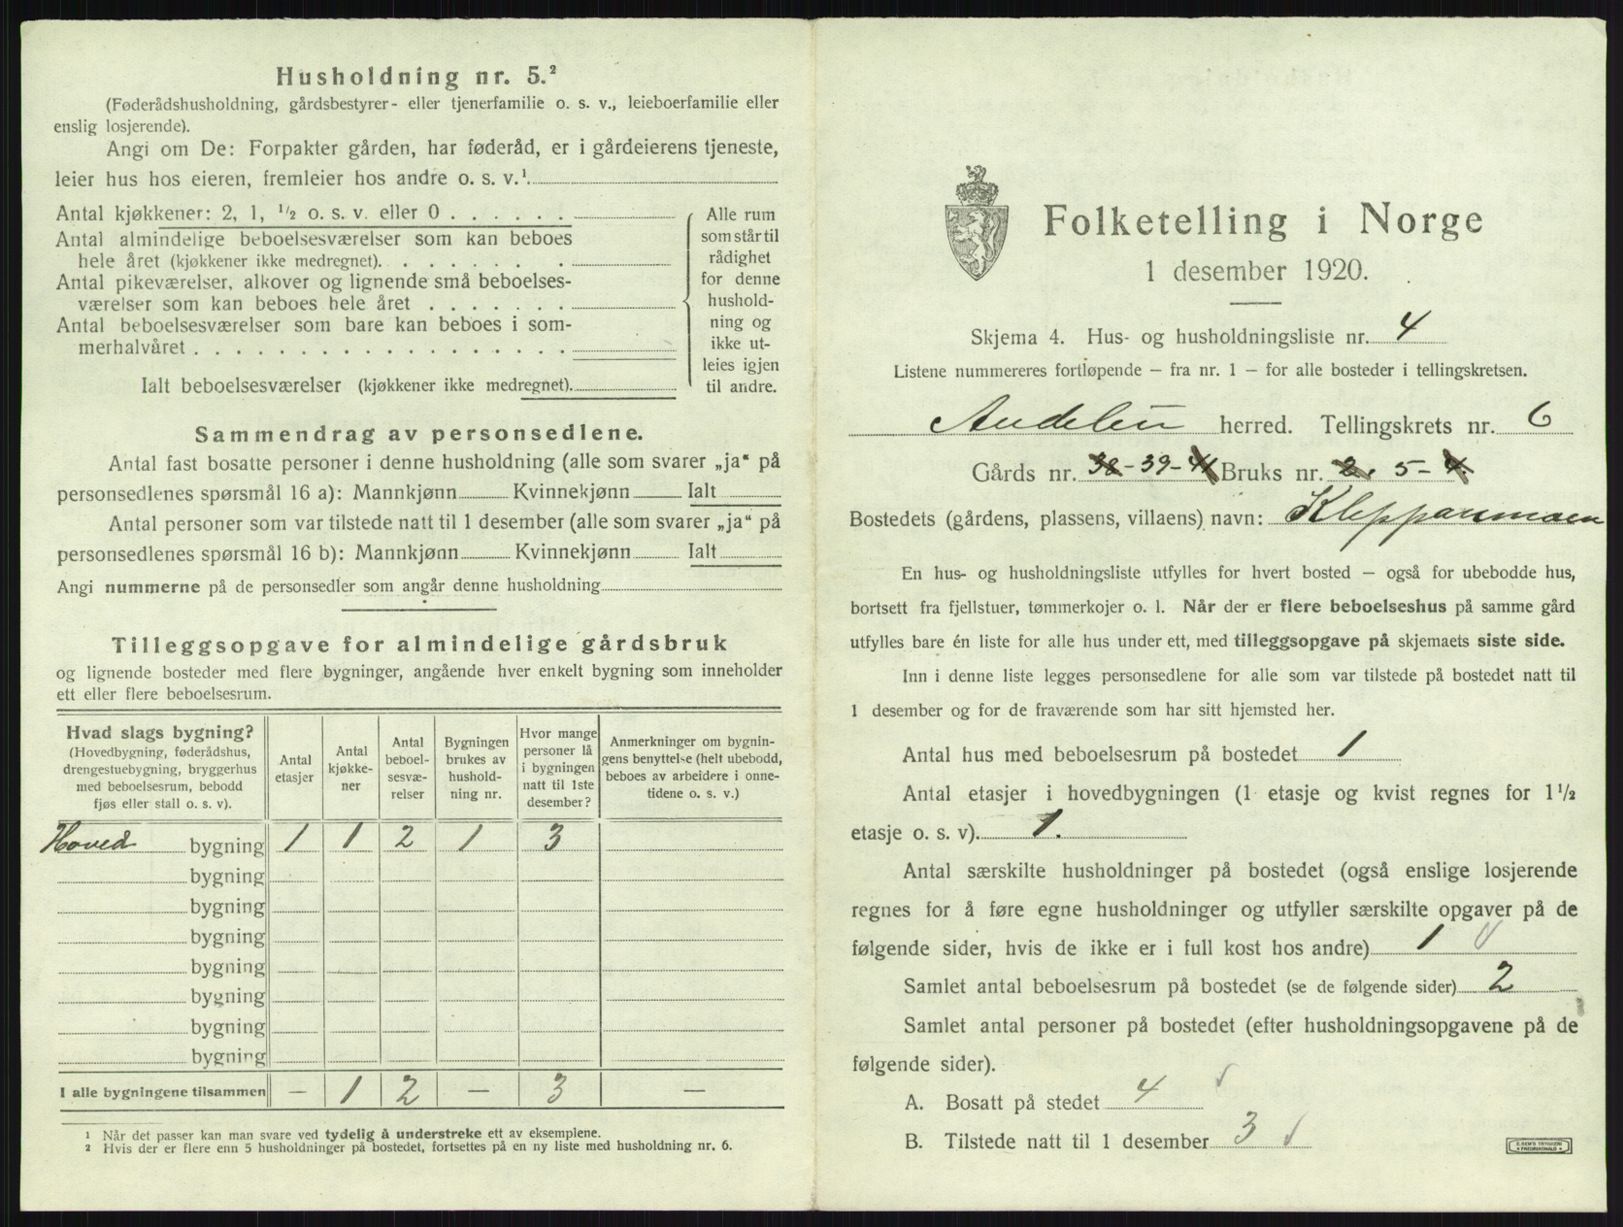 Husholdning nr. 5.²
(Føderådshusholdning, gårdsbestyrer- eller tjenerfamilie o. s. v., leieboerfamilie eller
enslig losjerende).
Angi om De: Forpakter gården, har føderåd, er i gårdeierens tjeneste,
leier hus hos eieren, fremleier hos andre o. s. v.¹
Antal kjøkkener: 2, 1, ½ o. s. v. eller 0
Antal almindelige beboelsesværelser som kan beboes
hele året (kjøkkener ikke medregnet)
Antal pikeværelser, alkover og lignende små beboelses-
værelser som kan beboes hele året
Antal beboelsesværelser som bare kan beboes i som-
merhalvåret
Ialt beboelsesværelser (kjøkkener ikke medregnet)
Alle rum
som står til
rådighet
for denne
hushold-
ning og
ikke ut-
leies igjen
til andre.
Sammendrag av personsedlene.
Antal fast bosatte personer i denne husholdning (alle som svarer „ja“ på
personsedlenes spørsmål 16 a): Mannkjønn Kvinnekjønn Ialt
Antal personer som var tilstede natt til 1 desember (alle som svarer „ja“ på
personsedlenes spørsmål 16 b): Mannkjønn Kvinnekjønn Ialt
Angi nummerne på de personsedler som angår denne husholdning
Tilleggsopgave for almindelige gårdsbruk
og lignende bosteder med flere bygninger, angående hver enkelt bygning som inneholder
ett eller flere beboelsesrum.
Hvad slags bygning?
(Hovedbygning, føderådshus,
drengestuebygning, bryggerhus
med beboelsesrum, bebodd
fjøs eller stall o. s. v).
Antal
etasjer
Antal
kjøkke-
ner
Antal
beboel-
sesvæ-
relser
Bygningen
brukes av
hushold-
ning nr.
Hvor mange
personer lå
i bygningen
natt til 1ste
desember?
Anmerkninger om bygnin-
gens benyttelse (helt ubebodd,
beboes av arbeidere i onne-
tidene o. s. v.)
Hoved bygning 1 1 2 1 3
bygning
bygning
bygning
bygning
bygning
bygning
bygning
I alle bygningene tilsammen – 1 2 – 3 –
¹ Når det passer kan man svare ved tydelig å understreke ett av eksemplene.
² Hvis der er flere enn 5 husholdninger på bostedet, fortsettes på en ny liste med husholdning nr. 6.
Folketelling i Norge
1 desember 1920.
Skjema 4. Hus- og husholdningsliste nr. 4
Listene nummereres fortløpende – fra nr. 1 – for alle bosteder i tellingskretsen.
Audnedal herred. Tellingskrets nr. 6
Gårds nr. 38-39-41 Bruks nr. 2. 5-4.
Bostedets (gårdens, plassens, villaens) navn: Kleppansmoen
En hus- og husholdningsliste utfylles for hvert bosted – også for ubebodde hus,
bortsett fra fjellstuer, tømmerkojer o. l. Når der er flere beboelseshus på samme gård
utfylles bare én liste for alle hus under ett, med tilleggsopgave på skjemaets siste side.
Inn i denne liste legges personsedlene for alle som var tilstede på bostedet natt til
1 desember og for de fraværende som har sitt hjemsted her.
Antal hus med beboelsesrum på bostedet 1
Antal etasjer i hovedbygningen (1 etasje og kvist regnes for 1½
etasje o. s. v). 1.
Antal særskilte husholdninger på bostedet (også enslige losjerende
regnes for å føre egne husholdninger og utfyller særskilte opgaver på de
følgende sider, hvis de ikke er i full kost hos andre) 1
Samlet antal beboelsesrum på bostedet (se de følgende sider) 2
Samlet antal personer på bostedet (efter husholdningsopgavene på de
følgende sider).
A. Bosatt på stedet 4
B. Tilstede natt til 1 desember 3